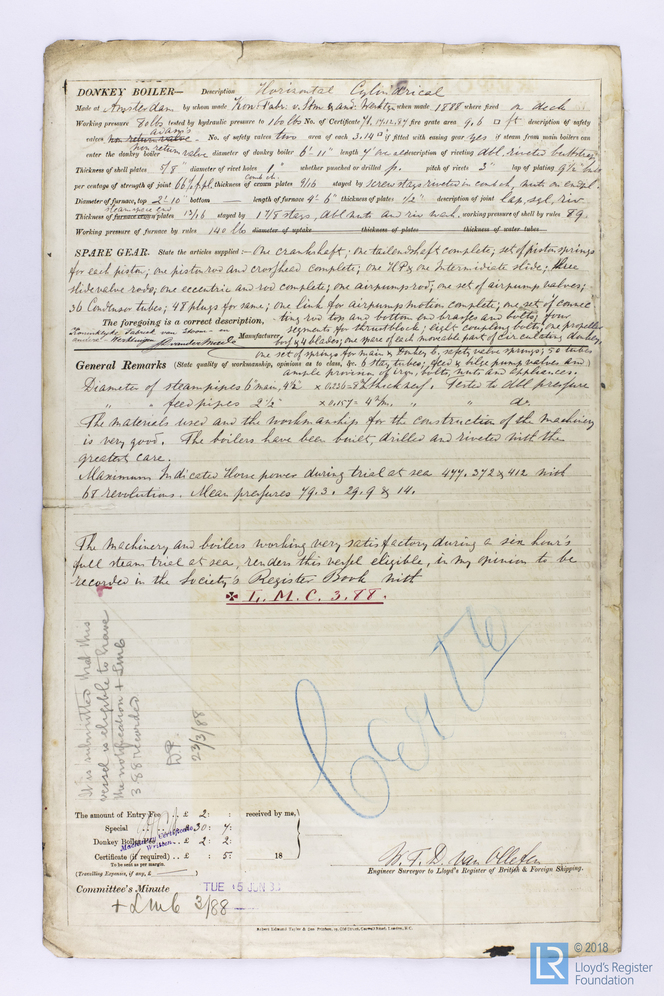 DONKEY BOILER— Description Horizontal Cylindrical
Made at Amsterdam by whom made Kon. Fabr. v. Stm. & and. Werktgn when made 1888 where fixed on deck
Working pressure 80lbs tested by hydraulic pressure to 160 lbs No. of Certificate 71, 17.12.87 fire grate area 9,6 □ ft description of safety
valves non return valve adam's No. of safety valves two area of each 3.14 □" if fitted with easing gear yes if steam from main boilers can
enter the donkey boiler non return valve diameter of donkey boiler 6'-11" length description of riveting dbl, riveted buttstraps
Thickness of shell plates 5/8" diameter of rivet holes 1" whether punched or drilled pitch of rivets 3" lap of plating 9 1/4"
per centage of strength of joint thickness of crown plates 9/16 stayed by screw stays riveted in
Diameter of furnace, top 2'-10" bottom — length of furnace 4'-6" thickness of plates 1/2" description of joint lap, sgl, riv.
Thickness of furnace crown plates 13/16 stayed by 1 7/8 stays, dbl nuts and riv wash. working pressure of shell by rules 89.
Working pressure of furnace by rules 140 lbs diameter of uptake thickness of plates thickness of water tubes
SPARE GEAR. State the articles supplied:— One crankshaft; one tailendshaft complete; set of piston springs
for each piston; one piston rod and crosshead complete; one H.P. & one Intermediate slide; three
slide valve rods; one eccentric and rod complete; one airpump rod; one set of airpump valves;
36 Condensor tubes; 48 plugs for same; one link for airpumps motion complete; one set of connec
ting rod top and bottom end brasses and bolts; four
The foregoing is a correct description,
segments for thrustblock; eight coupling bolts; one propeller
Manufacturer. boss & 4 blades; one spare of each moveable part of circulating donkey,
one set of springs for main & Donkey b, safety valve springs; 50 tubes
General Remarks (State quality of workmanship, opinions as to class, &c. 6 stay tubes; feed & bilge pump valves and
ample provision of iron, bolts, nuts and appliances.
Diameter of steam pipes 6" main, 4 1/2" thickness. Tested to dbl pressure
" " feed pipes 2 1/2" " do.
The materials used and the workmanship for the construction of the machinery
is very good. The boilers have been built, drilled and riveted with the
greatest care.
Maximum Indicated Horse power during trial at sea 477. 372 & 412 with
68 revolutions. Mean pressures 79.3. 29.9 & 14.
The machinery and boilers working very satisfactory during a six hour's
full steam trial at sea, renders this vessel eligible, in my opinion to be
recorded in the Society's Register Book with
✠ L. M. C. 3. 88.
It is submitted that this
vessel is eligible to have
the notification + LMC
3.88 recorded
D.P.
23/3/88
Certfe
The amount of Entry Fee .. £ 2: : received by me,
Special .. .. £ 30: 7:
Donkey Boiler Fee .. £ 2: 2:
Machinery Certificate
Written.
Certificate (if required) .. £ : 5: 18
To be sent as per margin.
(Travelling Expenses, if any, £ )
W. T. D. Van Ollefen
Engineer Surveyor to Lloyd's Register of British & Foreign Shipping.
Committee's Minute TUE 5 JUN 88
+ LMC 3/88
© 2018
LR
Lloyd's Register
Foundation